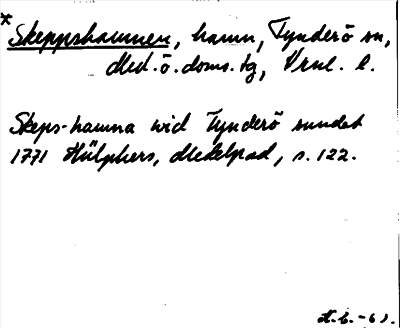 *
Skeppshamnen, hamn, Tynderö sn,
Med. ö. doms. tg, Vrnl. l.
Skeps-hamna wid Tynderö sundet
1771 Hülphers, Medelpad, s. 122.